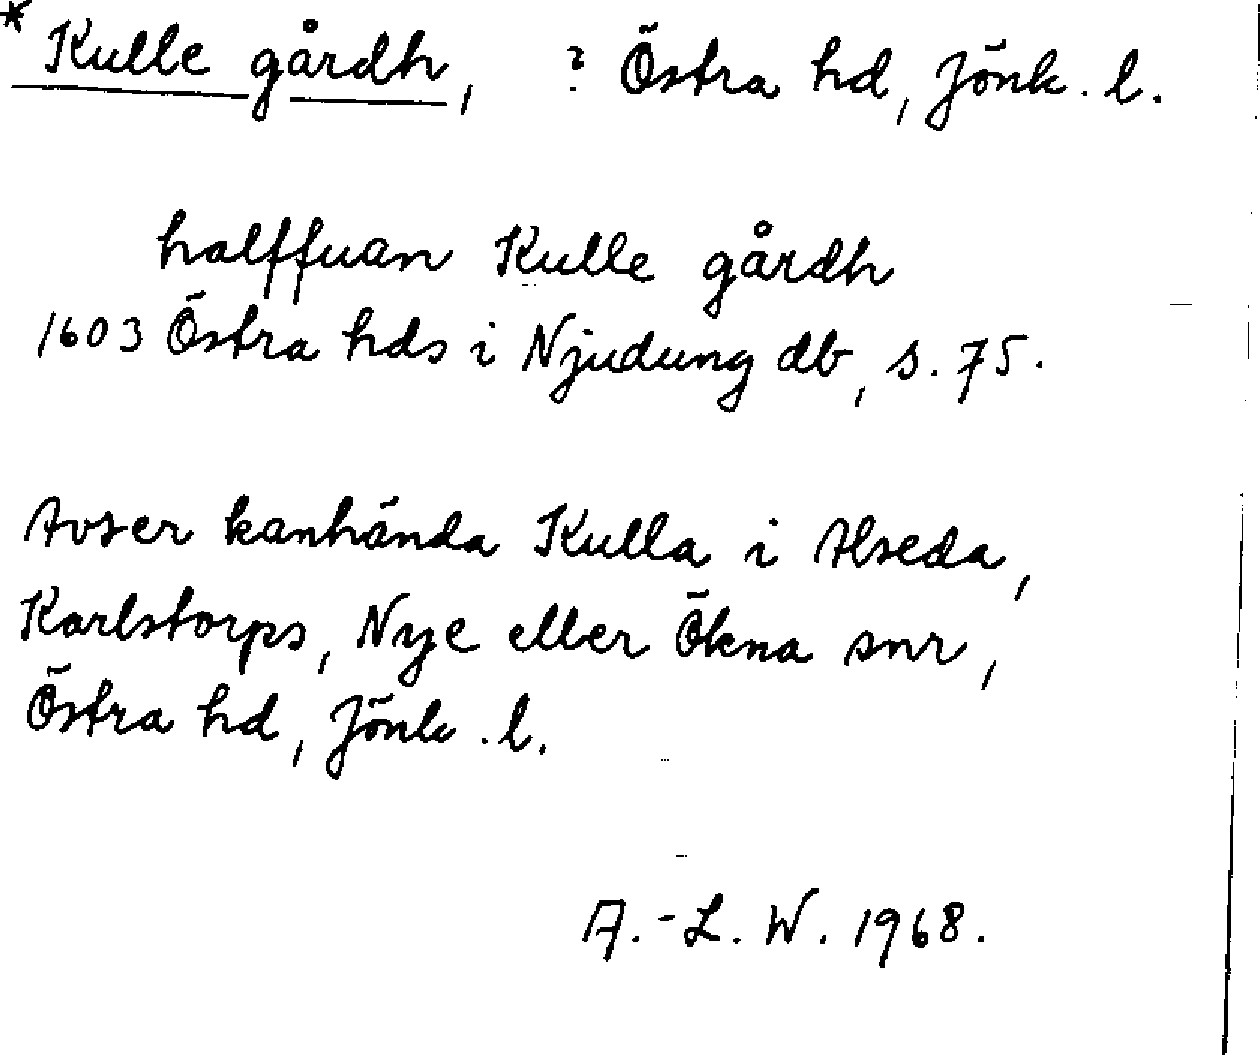 * Kulle gårdh, ? Östra hd, Jönk. l.
halffuan Kulle gårdh
1603 Östra hds i Njudung db, s. 75.
Avser kanhända Kulla i Alseda,
Karlstorps, Nye eller Ökna snr,
Östra hd, Jönk. l.
A.-L. W. 1968.